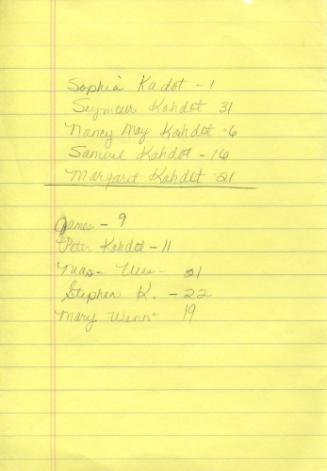 Sophia Kadot - 1
Seymour Kahdot 31
Nancy May Kahdot - 6
Samuel Kahdot - 16
Margaret Kahdot - 21
James - 9
Peter Kahdot - 11
21
Stephen K. - 22
Mary 19